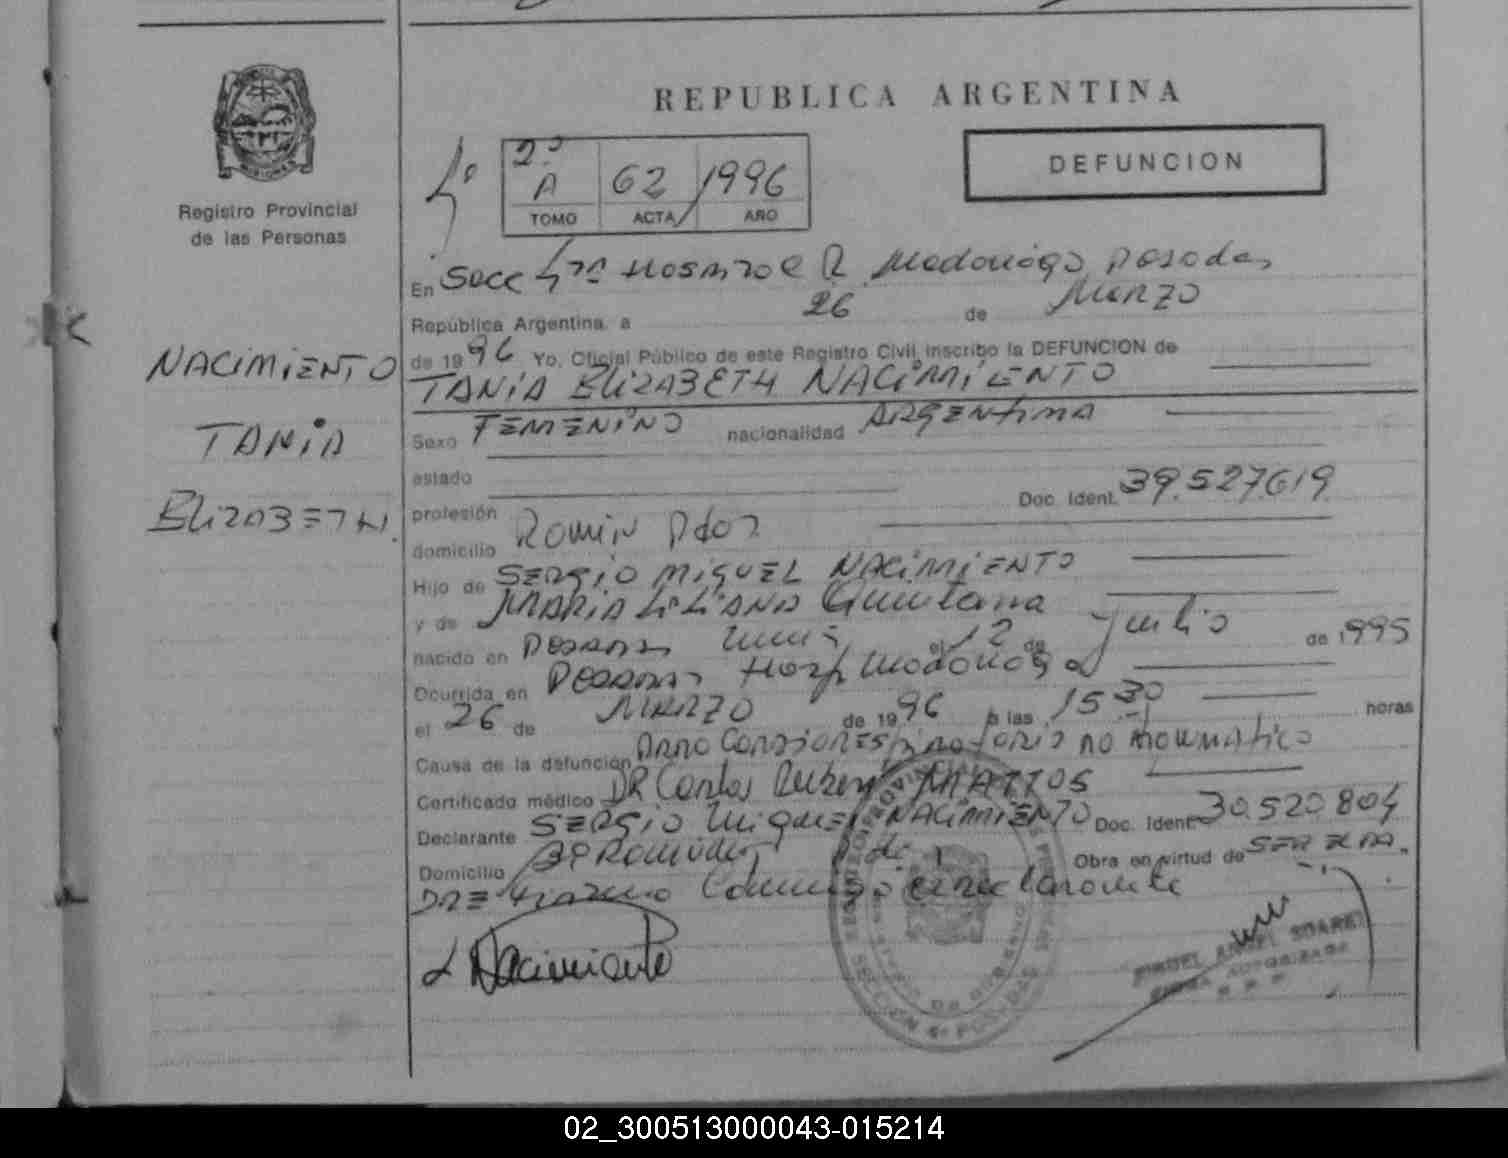 REPUBLICA ARGENTINA
DEFUNCION
Registro Provincial
de las Personas
4ª
2º
A 62 / 1996
TOMO ACTA AÑO
En Secc 4ta Hospital R Madariaga Posadas
República Argentina, a 26 de Marzo
de 1996 Yo, Oficial Público de este Registro Civil, inscribo la DEFUNCION de
TANIA ELIZABETH NACIMIENTO
NACIMIENTO
TANIA
ELIZABETH.
Sexo FEMENINO nacionalidad ARGENTINA
estado
Doc. Ident. 39.527.619
profesión
domicilio
Hijo de SERGIO MIGUEL NACIMIENTO
y de MARIA LILIANA Quintana
nacido en Posadas el 12 de Junio de 1995
Ocurrida en Posadas Hosp Madariaga
el 26 de MARZO de 1996 a las 15 30 horas
Causa de la defunción Paro Cardiorespiratorio no traumatico
Certificado médico DR Carlos Ruben MATTOS
Declarante SERGIO Miguel NACIMIENTO Doc. Ident. 30.520.804
Domicilio Obra en virtud de
Nacimiento
SECCION 4ª POSADAS
MIGUEL ANGEL SUAREZ
FIRMA AUTORIZADA
02_300513000043-015214